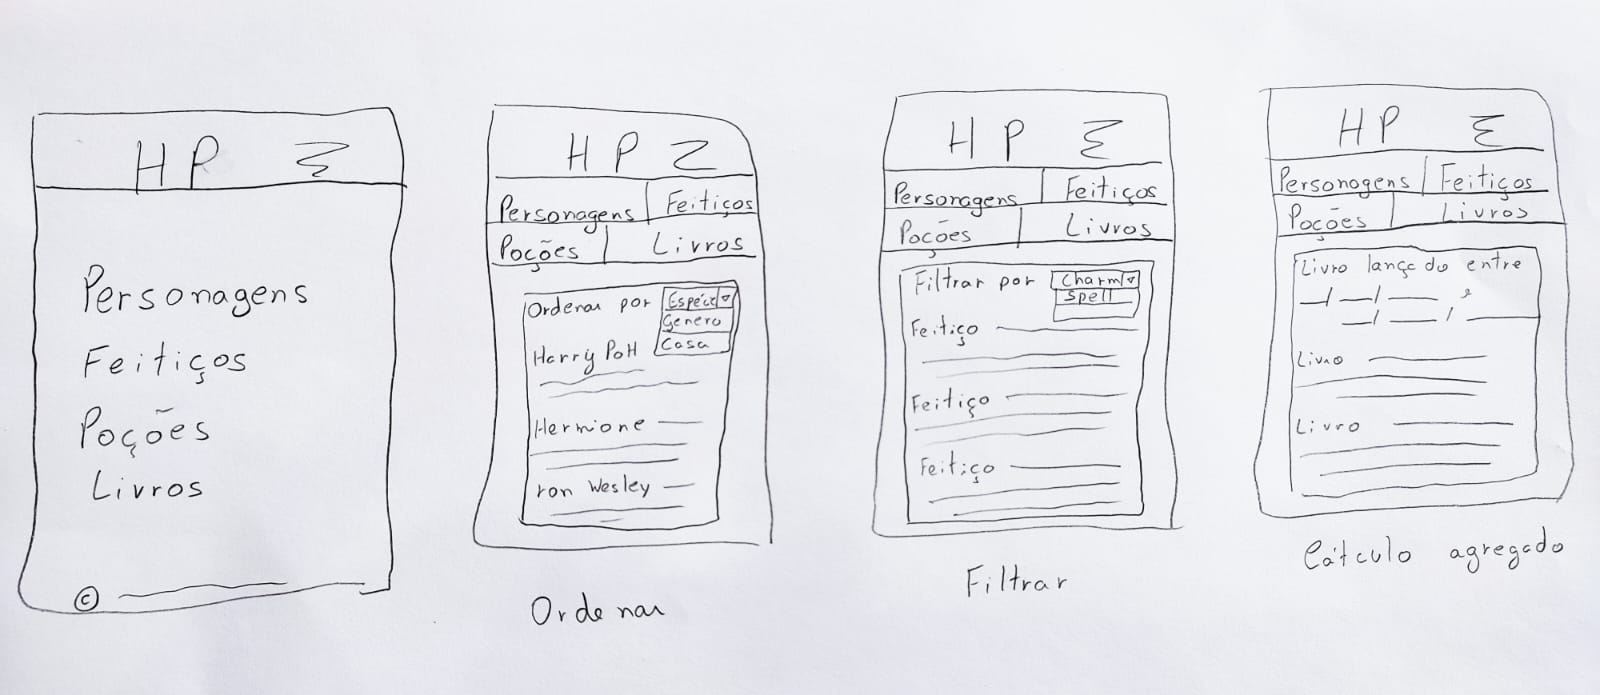 HP
Personagens
Feitiços
Poções
Livros
©
HP
Personagens Feitiços
Poções Livros
Ordenar por Espécie
Genero
Casa
Harry Pott
Hermione
ron Wesley
Ordenar
HP
Personagens Feitiços
Poções Livros
Filtrar por Charm
Spell
Feitiço
Feitiço
Feitiço
Filtrar
HP
Personagens Feitiços
Poções Livros
Livro lançado entre
e
Livro
Livro
Cálculo agregado